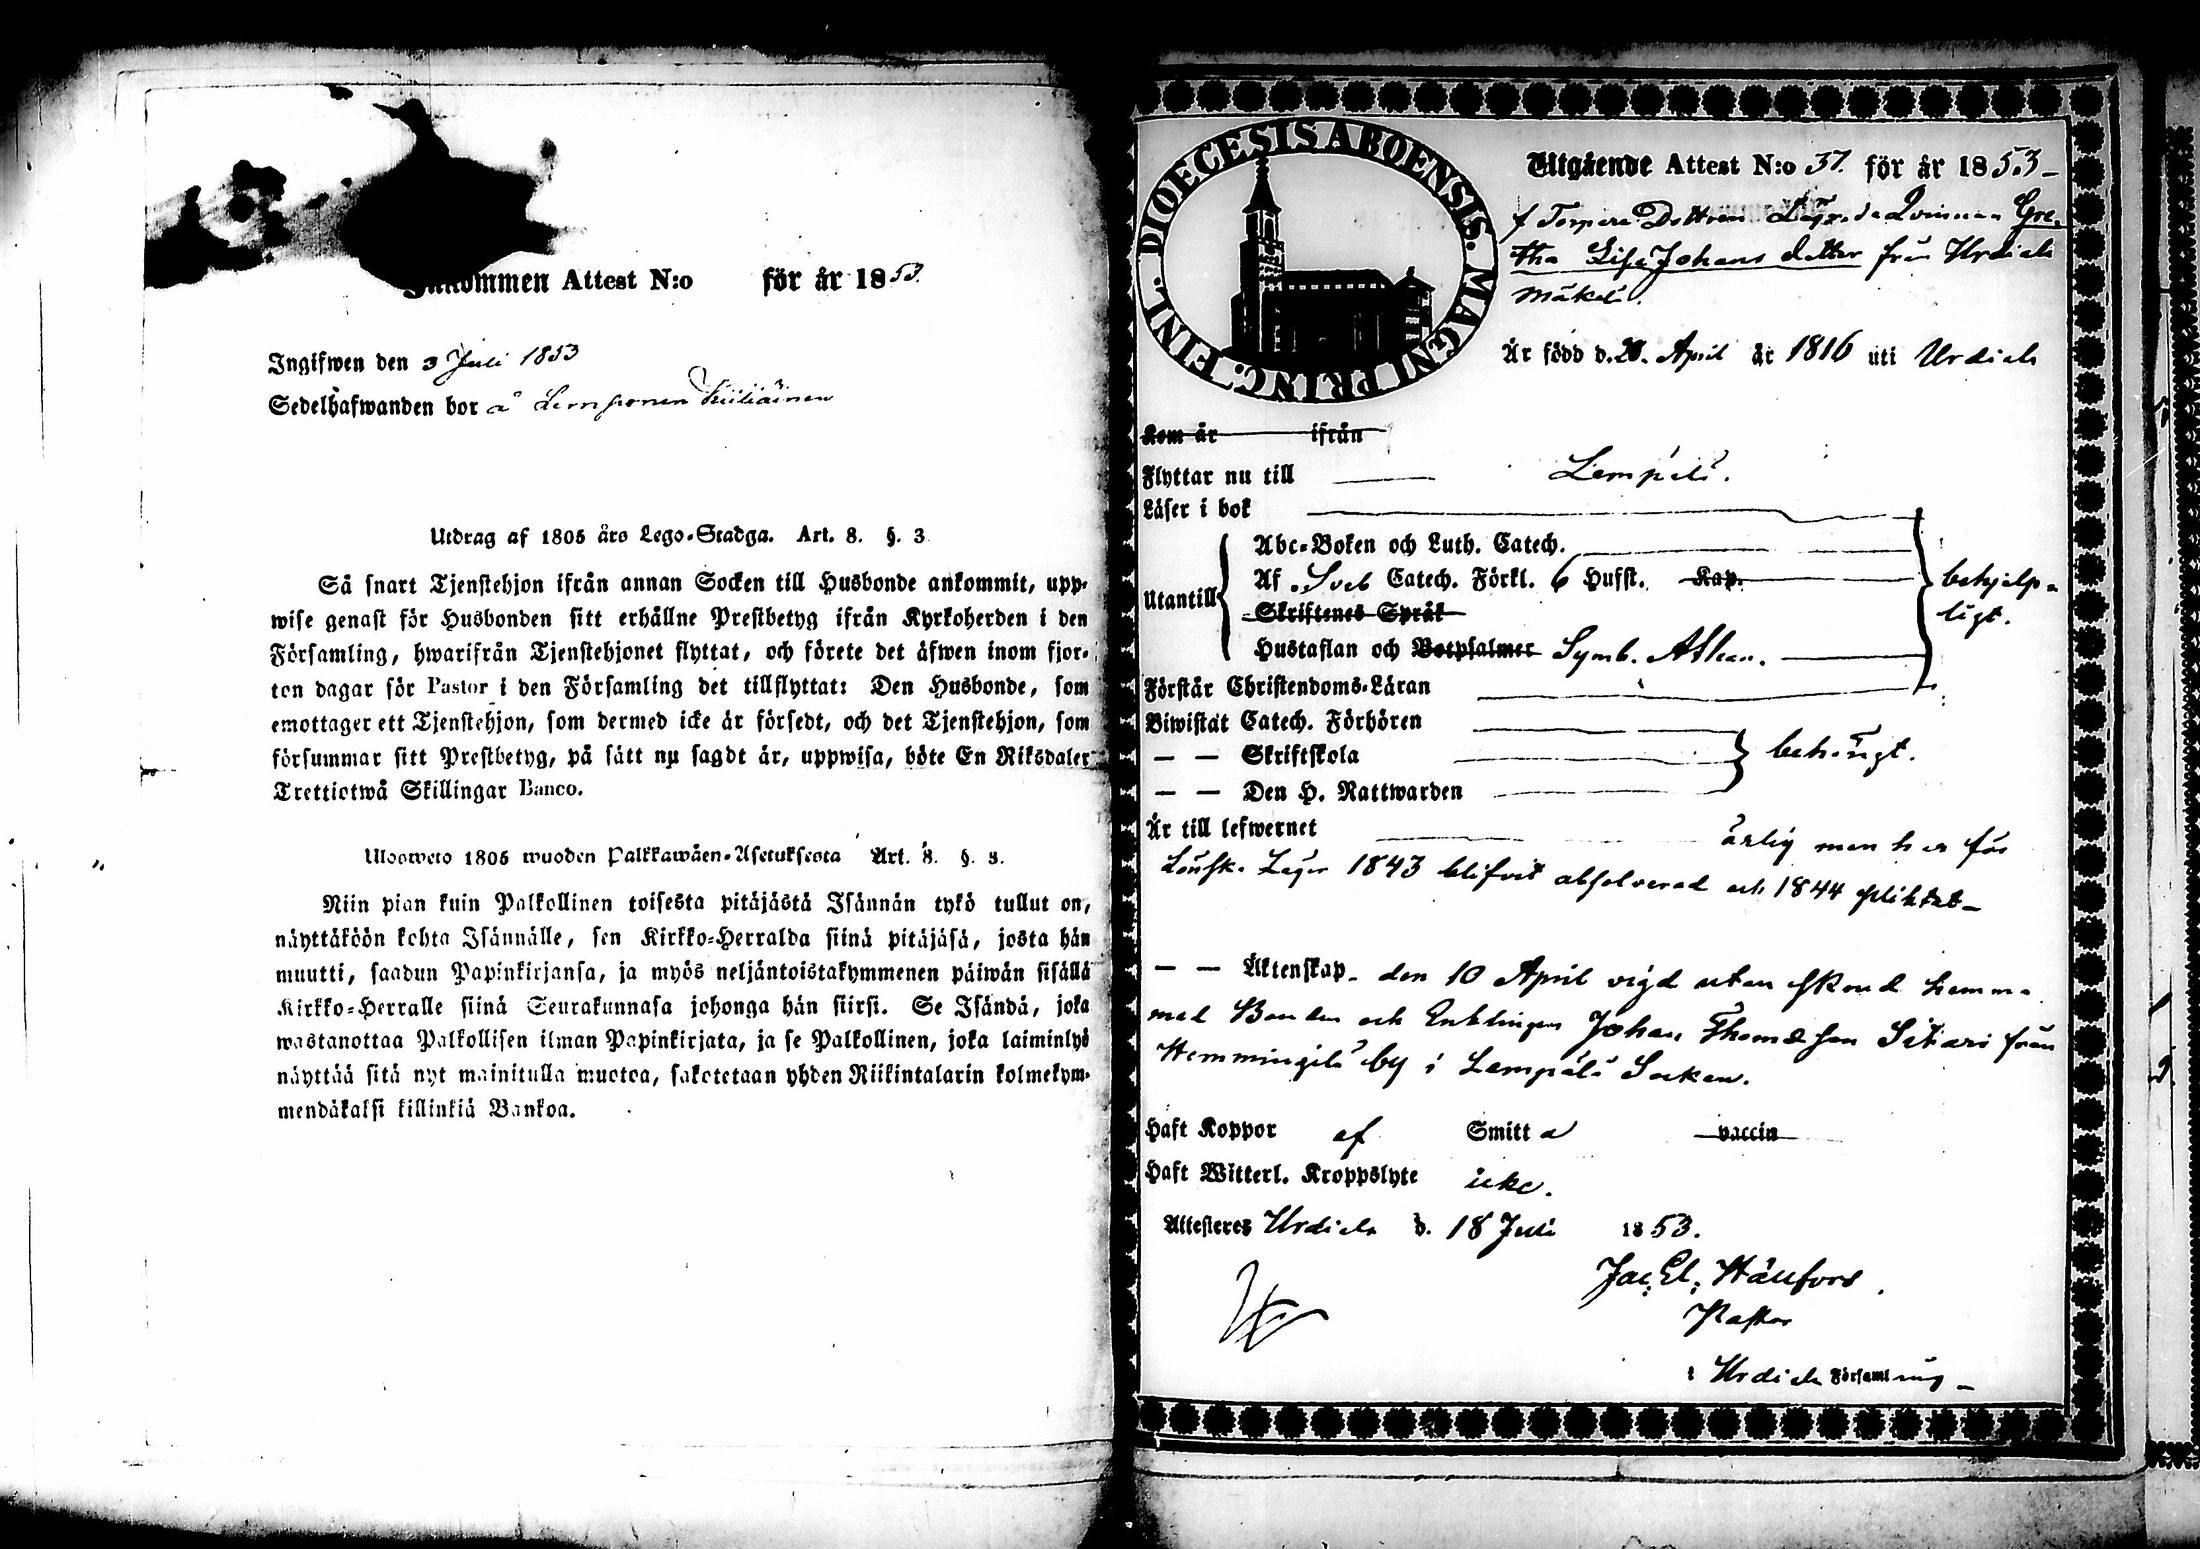 Inkommen Attest N:o för år 1853.
Ingifwen den 3 Juli 1853
Sedelhafwanden bor å Lemponen
Utdrag af 1805 års Lego-Stadga. Art. 8. §. 3
Så snart Tjenstehjon ifrån annan Socken till Husbonde ankommit, upp-
wise genast för Husbonden sitt erhållne Prestbetyg ifrån Kyrkoherden i den
Församling, hwarifrån Tjenstehjonet flyttat, och förete det äfwen inom fjor-
ton dagar för Pastor i den Församling det tillflyttat: Den Husbonde, som
emottager ett Tjenstehjon, som dermed icke är försedt, och det Tjenstehjon, som
försummar sitt Prestbetyg, på sätt nu sagdt är, uppwisa, böte En Riksdaler
Trettiotwå Skillingar Banco.
Ulosweto 1805 wuoden Palkkawäen-Asetuksesta Art. 8. §. 3.
Niin pian kuin Palkollinen toisesta pitäjästä Isännän tykö tullut on,
näyttäköön kohta Isännälle, sen Kirkko-Herralda siinä pitäjäsä, josta hän
muutti, saadun Papinkirjansa, ja myös neljäntoistakymmenen päiwän sisällä
Kirkko-Herralle siinä Seurakunnasa johonga hän siirsi. Se Isändä, joka
wastanottaa Palkollisen ilman Papinkirjata, ja se Palkollinen, joka laiminlyö
näyttää sitä nyt mainitulla muotoa, sakotetaan yhden Riikintalarin kolmekym-
mendäkaksi killinkiä Bankoa.
DIOECESIS ABOENSIS. MAGNI PRINC. FINL.
Utgående Attest N:o 37. för år 1853
f Torpare Dottren Lägrade Qvinnan Gre-
tha Lisa Johans dotter från Urdiala
Mäkelä.
Är född d. 20. April år 1816 uti Urdiala
Kom år ifrån
Flyttar nu till Lempälä.
Läser i bok
Abc-Boken och Luth. Catech.
Utantill Af Sveb Catech. Förkl. 6 Hufst. Kap. behjelp-
ligt.
Skriftenes Språk
Hustaflan och Botpsalmer Symb. Athan.
Förstår Christendoms-Läran
Biwistat Catech. Förhören
— — Skriftskola behörigt.
— — Den H. Nattwarden
Är till lefwernet ärlig men har för
Lönsk. Läger 1843 blifvit absolverad och 1844 pliktat
— — Äktenskap den 10 April vigd utan hemma
med Bonden och Enklingen Johan Thomasson Sitari från
Hemmingilä by i Lempälä Socken.
Haft Koppor af Smitta vaccin
Haft Witterl. Kroppslyte icke.
Attesteres Urdiala d. 18 Juli 1853.
Jac. El. Hällfors
Pastor
i Urdiala Församling